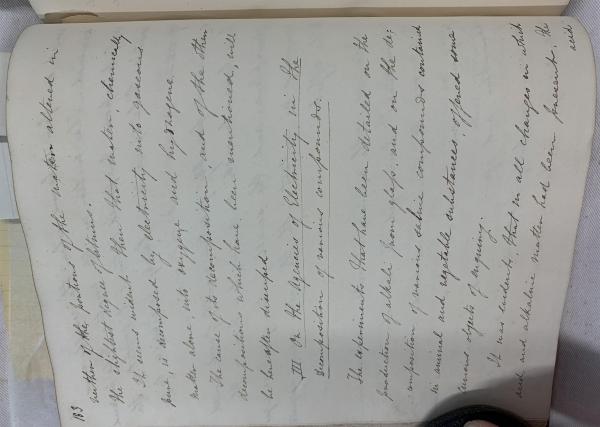 183
nection of the portions of the matter altered in
the slightest degree of litmus.
It seems evident then that water, chemically
pure, is decomposed by electricity into gaseous
matter alone into oxygene and hydrogene.
The cause of its decomposition and of the other
decompositions which have been mentioned, will
be hereafter discussed
III On the Agencies of Electricity in the
decomposition of various compounds.
The experiments that have been detailed on the
production of alkali from glass and on the de:
composition of various saline compounds contained
in animal and vegetable substances offered some
curious objects of inquiry.
It was evident that in all changes in which
acid and alkaline matter had been present, the
acid